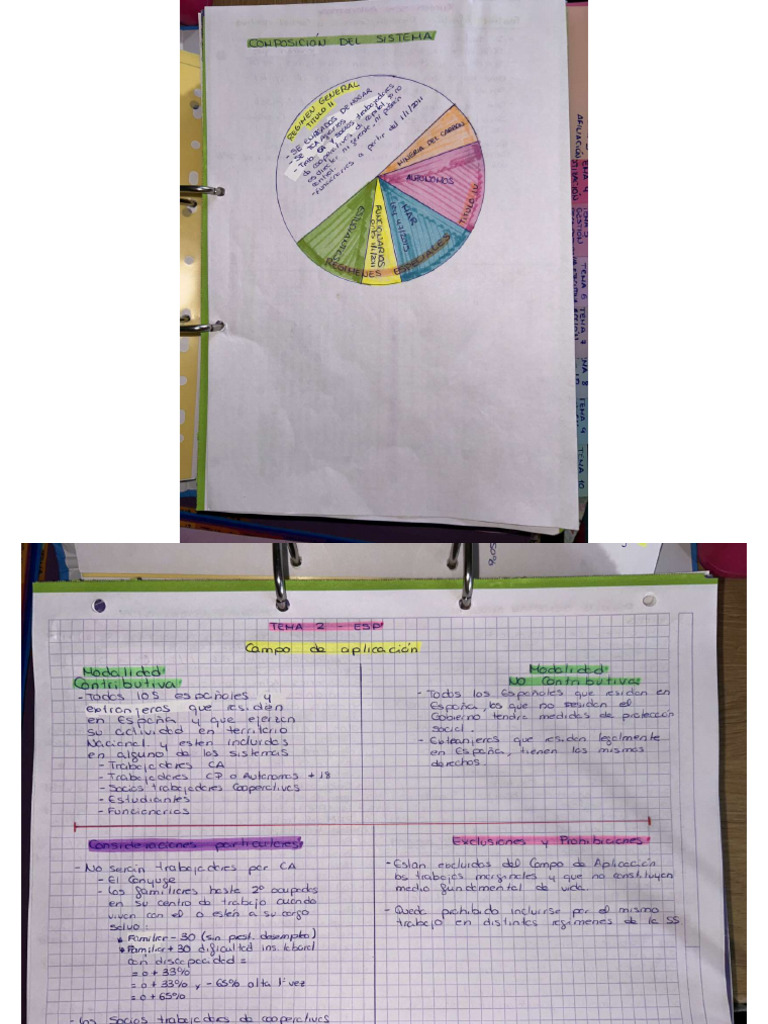 COMPOSICIÓN DEL SISTEMA
REGIMEN GENERAL
TITULO II
- SE EMPLEADOS DE HOGAR
- SE AGRARIOS
- TRAB
socios trabajadores
de cooperativas de capital
control
- funcionarios a partir del 1/1/2011
MINERIA DEL CARBON
AUTONOMOS
TITULO IV
MAR
LEY 47/2015
FUNCIONARIOS
1/1/2011
ESTUDIANTES
REGIMENES ESPECIALES
TEMA 4
AFILIACIÓN
TEMA 5
GESTIÓN
TEMA 6
TEMA 7
TEMA 8
TEMA 9
TEMA 10
50%
TEMA 2 - ESP
Campo de aplicación
Modalidad
Contributiva
- Todos los españoles y
extranjeros que residen
en España y que ejerzan
su actividad en territorio
Nacional y esten incluidos
en alguno de los sistemas
- Trabajadores CA
- Trabajadores CP o Autonomos + 18
- Socios trabajadores Cooperativas
- Estudiantes
- Funcionarios
Modalidad
No Contributiva
- Todos los Españoles que residan en
España, los que no residan el
Gobierno tendra medidas de protección
social.
- Extranjeros que residan legalmente
en España, tienen los mismos
derechos.
Consideraciones particulares
- No serán trabajadores por CA
- El Conyuge
- Los familieres hasta 2º ocupados
en su centro de trabajo cuando
viven con el o esten a su cargo
salvo:
* Familiar - 30 (sin prest. desempleo)
* Familiar + 30 dificultad ins. laboral
con discapacidad =
= o + 33%
= o + 33% y - 65% alta 1ª vez
= o + 65%
- Los Socios trabajadores de cooperatives
Exclusiones y Prohibiciones
- Estan excluidos del Campo de Aplicación
los trabajos marginales y que no constituyen
medio fundamental de vida.
- Queda prohibido incluirse por el mismo
trabajo en distintos regimenes de la SS